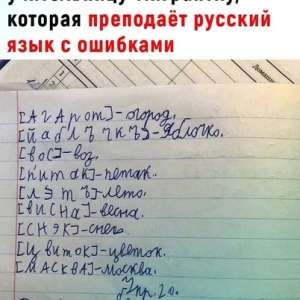 которая преподаёт русский
язык с ошибками
[Агарот]-огород.
[йаблъчкъ]-Яблочко.
[вос]-воз.
[питак]-пятак.
[лэтъ]-лето.
[висна]-весна.
[снэк]-снег.
[цвиток]-цветок.
[МАСКВА]-Москва.